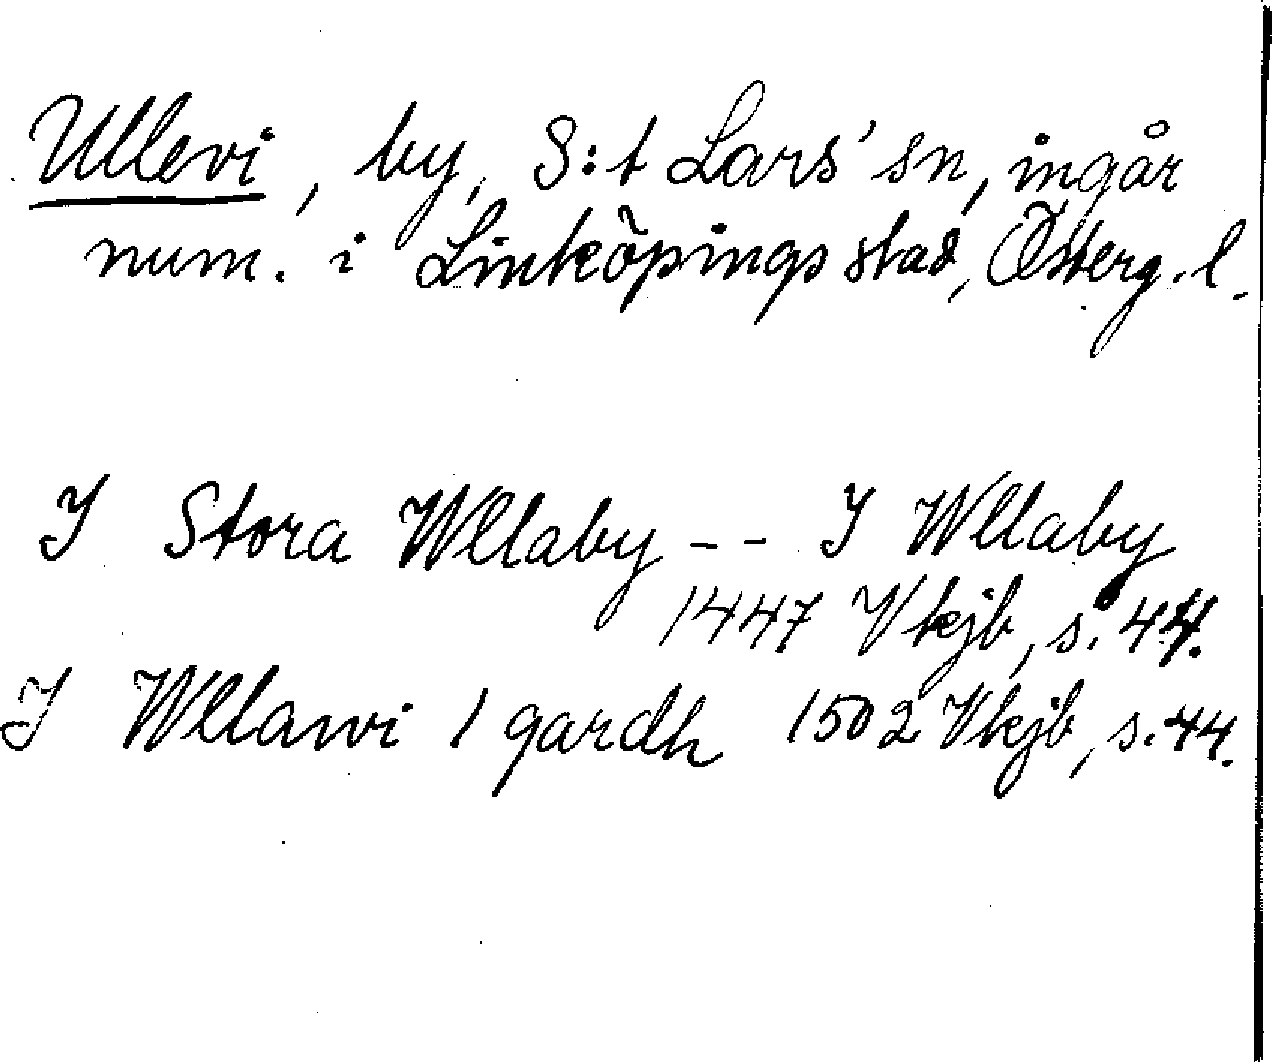 Ullevi, by, S:t Lars' sn, ingår
num. i Linköpings stad, Österg. l.
I Stora Wllaby - - I Wllaby
1447 Vkjb, s. 44.
I Wllawi 1 gardh 1502 Vkjb, s. 44.